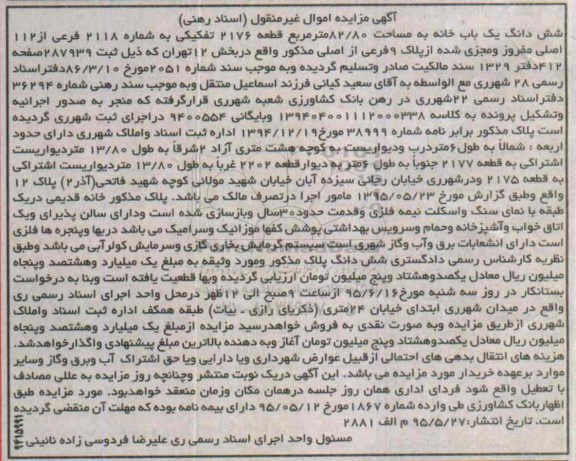 آگهی مزایده اموال غیرمنقول (اسناد رهنی)
شش دانگ یک باب خانه به مساحت ۸۲/۸۰مترمربع قطعه ۲۱۷۶ تفکیکی به شماره ۲۱۱۸ فرعی از۱۱۲
اصلی مفروز ومجزی شده ازپلاک ۹فرعی از اصلی مذکور واقع دربخش ۱۲تهران که ذیل ثبت ۲۸۷۹۳۹صفحه
۴۱۲دفتر ۱۳۲۹ سند مالکیت صادر وتسلیم گردیده وبه موجب سند شماره ۲۰۵۱مورخ ۸۶/۳/۱۰دفتراسناد
رسمی ۲۸ شهرری مع الواسطه به آقای سعید کیانی فرزند اسماعیل منتقل وبه موجب سند رهنی شماره ۳۶۲۹۴
دفتراسناد رسمی ۲۲شهرری در رهن بانک کشاورزی شعبه شهرری قرارگرفته که منجر به صدور اجرائیه
وتشکیل پرونده به کلاسه ۱۳۹۴۰۴۰۰۱۱۱۲۰۰۰۳۳۸ وبایگانی ۹۴۰۰۵۵۴ دراجرای ثبت شهرری گردیده
است پلاک مذکور برابر نامه شماره ۳۸۹۹۹ مورخ۱۳۹۴/۱۲/۱۹ اداره ثبت اسناد واملاک شهرری دارای حدود
اربعه : شمالاً به طول۶متردرب ودیواریست به کوچه هشت متری آزاد ۲شرقاً به طول ۱۳/۸۰ متردیواریست
اشتراکی به قطعه ۲۱۷۷ جنوباً به طول ۶متر به دیوارقطعه ۲۲۰۲ غرباً به طول ۱۳/۸۰ متردیواریست اشتراکی
به قطعه ۲۱۷۵ ودرشهرری خیابان رجائی سیزده آبان خیابان شهید مولائی کوچه شهید فاتحی(آذر۲) پلاک ۱۲
واقع وطبق گزارش مورخ ۱۳۹۵/۰۵/۲۳ مامور اجرا درتصرف مالک می باشد. پلاک مذکور خانه قدیمی دریک
طبقه با نمای سنگ واسکلت نیمه فلزی وقدمت حدود۳۰سال وبازسازی شده است ودارای سالن پذیرای ویک
اتاق خواب وآشپزخانه وحمام وسرویس بهداشتی پوشش کفها موزائیک وسرامیک می باشد دربها وپنجره ها فلزی
است دارای انشعابات برق وآب وگاز شهری است سیستم گرمایش بخاری گازی وسرمایش کولرآبی می باشد وطبق
نظریه کارشناس رسمی دادگستری شش دانگ پلاک مذکور ومورد وثیقه به مبلغ یک میلیارد وهشتصد وپنجاه
میلیون ریال معادل یکصدوهشتاد وپنج میلیون تومان ارزیابی گردیده وبها قطعیت یافته است وبنا به درخواست
بستانکار در روز سه شنبه مورخ۹۵/۶/۱۶ ازساعت ۹صبح الی ۱۲ظهر درمحل واحد اجرای اسناد رسمی ری
واقع در میدان شهرری ابتدای خیابان ۲۴متری (ذکریای رازی ـ بیات) طبقه همکف اداره ثبت اسناد واملاک
شهرری ازطریق مزایده وبه صورت نقدی به فروش خواهدرسید مزایده ازمبلغ یک میلیارد وهشتصد وپنجاه
میلیون ریال معادل یکصدوهشتاد وپنج میلیون تومان آغاز وبه دهنده بالاترین مبلغ پیشنهادی واگذارخواهدشد.
هزینه های انتقال بدهی های احتمالی ازقبیل عوارض شهرداری ویا دارایی ویا حق اشتراک آب وبرق وگاز وسایر
موارد برعهده خریدار مورد مزایده می باشد. این آگهی دریک نوبت منتشر وچنانچه روز مزایده به عللی مصادف
با تعطیل واقع شود فردای اداری همان روز جلسه درهمان مکان وزمان منعقد خواهدبود. مورد مزایده طبق
اظهاربانک کشاورزی طی وارده شماره ۱۸۶۷مورخ ۹۵/۰۵/۱۲ دارای بیمه نامه بوده که مهلت آن منقضی گردیده
است. تاریخ انتشار:۹۵/۵/۲۷ م الف ۲۸۸۱
مسئول واحد اجرای اسناد رسمی ری علیرضا فردوسی زاده نائینی
۹۴۱۵۹۹۱